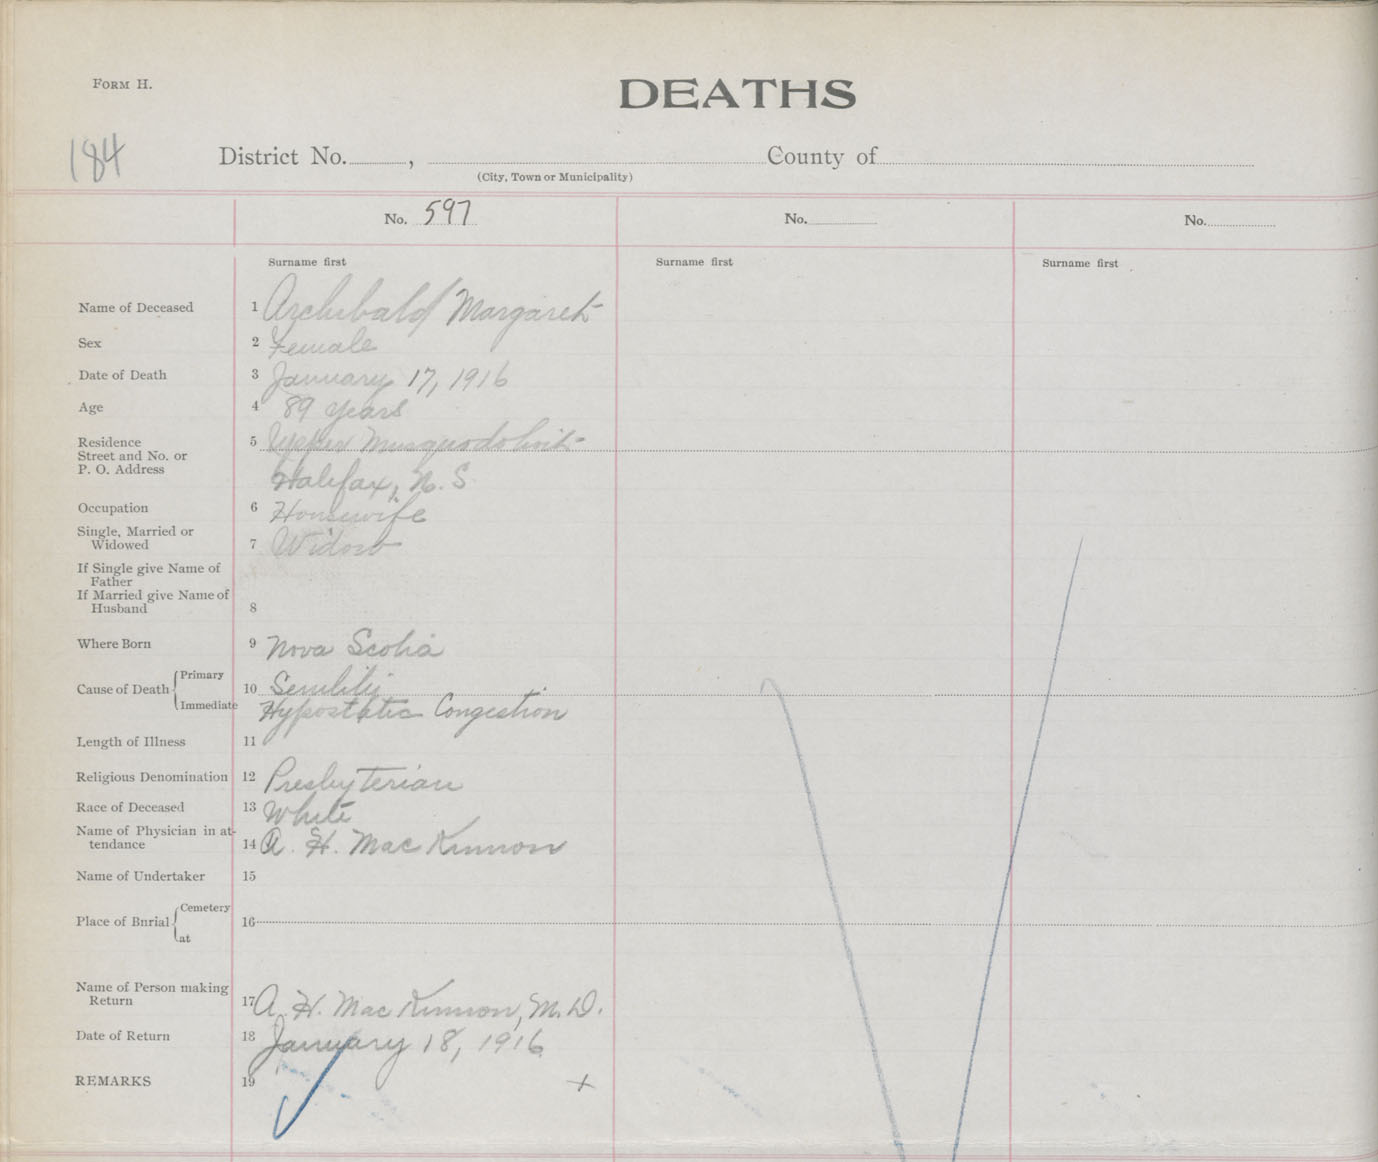 FORM H.
DEATHS
184
District No. , County of
(City, Town or Municipality)
No. 597 No. No.
Surname first Surname first Surname first
Name of Deceased 1 Archibald Margaret
Sex 2 Female
Date of Death 3 January 17, 1916
Age 4 89 years
Residence 5 Upper Musquodoboit
Street and No. or
P. O. Address Halifax, N. S.
Occupation 6 Housewife
Single, Married or
Widowed 7 Widow
If Single give Name of
Father
If Married give Name of
Husband 8
Where Born 9 Nova Scotia
Cause of Death Primary 10 Senility
Immediate Hypostatic Congestion
Length of Illness 11
Religious Denomination 12 Presbyterian
Race of Deceased 13 White
Name of Physician in at-
tendance 14 A. H. MacKinnon
Name of Undertaker 15
Place of Burial Cemetery 16
at
Name of Person making
Return 17 A. H. MacKinnon, M.D.
Date of Return 18 January 18, 1916
REMARKS 19 +